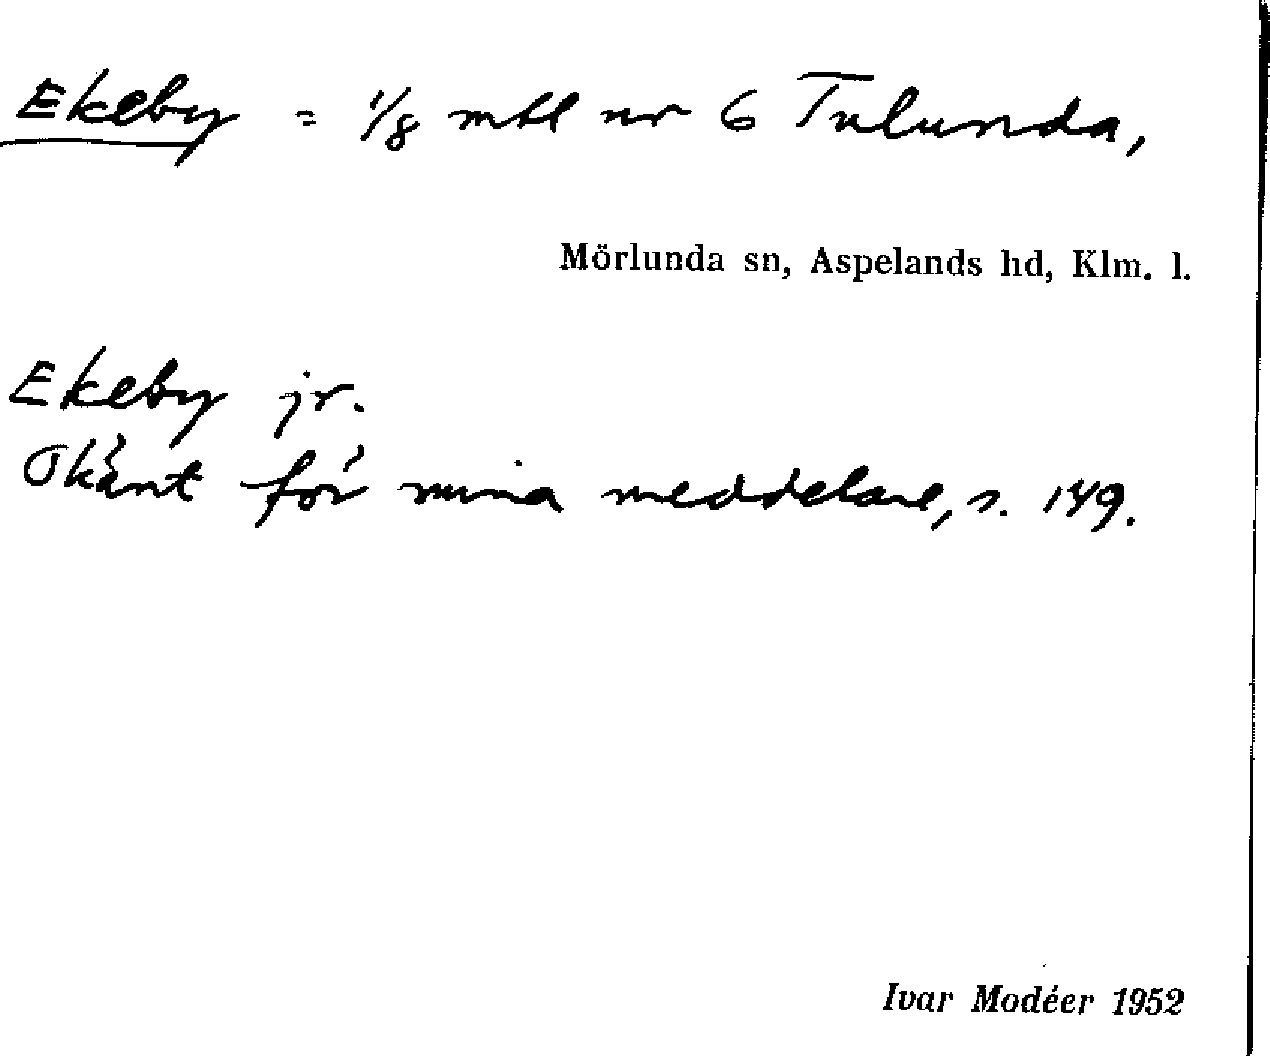 Ekeby = 1/8 mtl nr 6 Tulunda,
Mörlunda sn, Aspelands hd, Klm. l.
Ekeby jr.
Okänt för mina meddelare, s. 149.
Ivar Modéer 1952